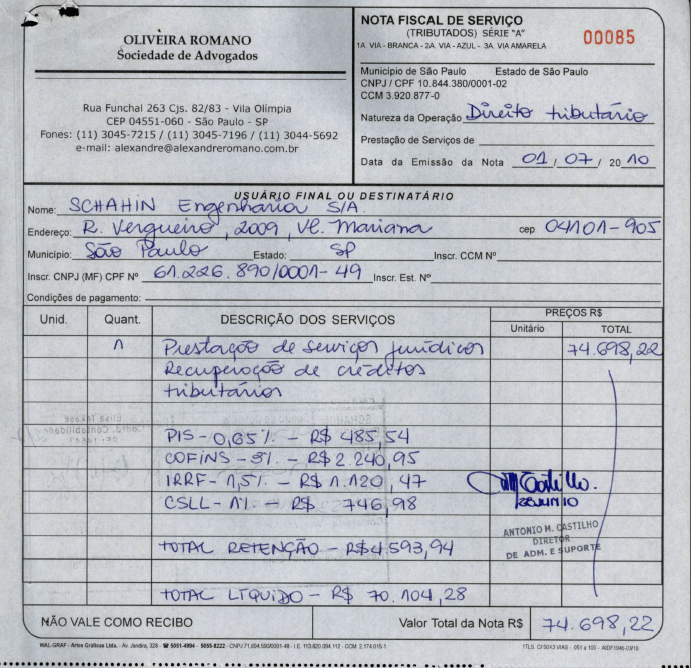 OLIVEIRA ROMANO
Sociedade de Advogados
Rua Funchal 263 Cjs. 82/83 - Vila Olímpia
CEP 04551-060 - São Paulo - SP
Fones: (11) 3045-7215 / (11) 3045-7196 / (11) 3044-5692
e-mail: alexandre@alexandreromano.com.br
NOTA FISCAL DE SERVIÇO
(TRIBUTADOS) SÉRIE "A"
00085
1A. VIA - BRANCA - 2A. VIA - AZUL - 3A. VIA AMARELA
Município de São Paulo Estado de São Paulo
CNPJ / CPF 10.844.380/0001-02
CCM 3.920.877-0
Natureza da Operação Direito tributário
Prestação de Serviços de
Data da Emissão da Nota 01 / 07 / 2010
USUÁRIO FINAL OU DESTINATÁRIO
Nome: SCHAHIN Engenharia S/A.
Endereço: R. Vergueiro, 2009, Vl. Mariana cep 04101-905
Município: São Paulo Estado: SP Inscr. CCM Nº
Inscr. CNPJ (MF) CPF Nº 61.226.890/0001-49 Inscr. Est. Nº
Condições de pagamento:
Unid. Quant. DESCRIÇÃO DOS SERVIÇOS PREÇOS R$
Unitário TOTAL
1 Prestação de serviços jurídicos 74.698,22
Recuperação de créditos
tributários
PIS - 0,65% - R$ 485,54
COFINS - 3% - R$ 2.240,95
IRRF - 1,5% - R$ 1.120,47
CSLL - 1% - R$ 746,98
Castilho.
28JUN10
ANTONIO M. CASTILHO
DIRETOR
DE ADM. E SUPORTE
TOTAL RETENÇÃO - R$4.593,94
TOTAL LÍQUIDO - R$ 70.104,28
NÃO VALE COMO RECIBO Valor Total da Nota R$ 74.698,22
MAL-GRAF - Artes Gráficas Ltda. - Av. Jandira, 328 - ☎ 5051-4994 - 5055-8222 - CNPJ 71.004.550/0001-46 - I.E. 113.820.094.112 - CCM. 2.174.015-1
1TLS. C/ 50X3 VIAS - 051 a 100 - AIDF 1946-03/10